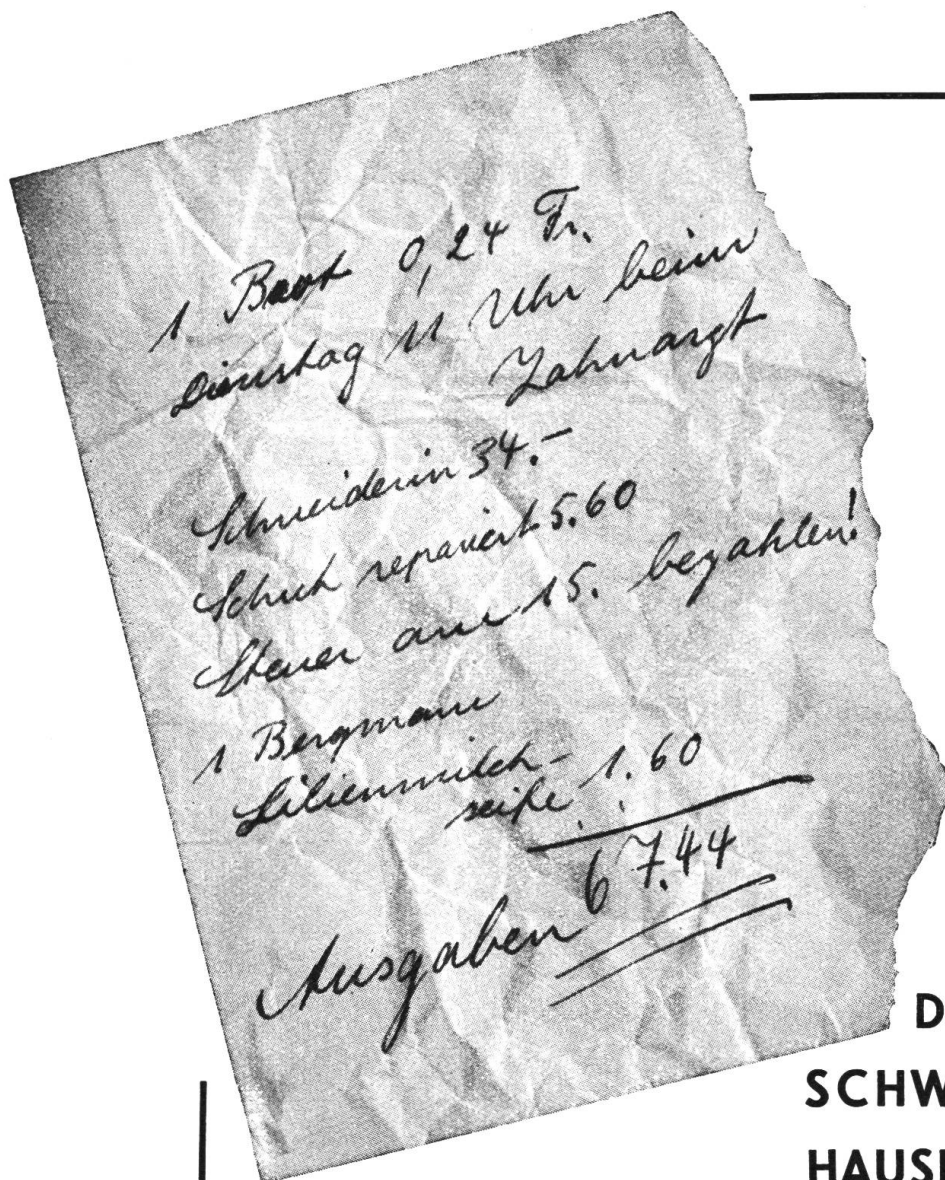 1 Brot 0,24 Fr.
Dienstag 11 Uhr beim
Zahnarzt
Schneiderin 34.–
Schuh repariert 5.60
Steuer am 15. bezahlen!
1 Bergmann
Lilienmilch-
seife 1.60
Ausgaben 67.44
D
SCHW
HAUSI